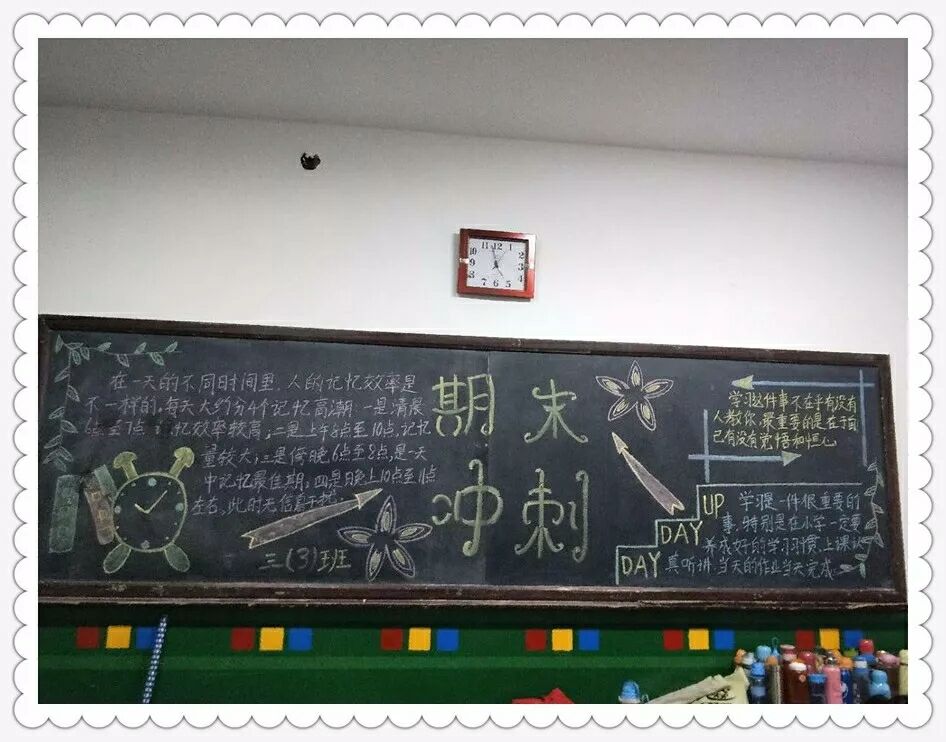 11 12 1
10 2
9 3
8 4
7 6 5
在一天的不同时间里,人的记忆效率是
不一样的,每天大约分4个记忆高潮.一是清晨
6点至7点,记忆效率较高;二是上午8点至10点,记忆
量较大;三是傍晚6点至8点,是一天
中记忆最佳期,四是日晚上10点至11点
左右,此时无信息干扰.
三(3)班班
期末
冲刺
学习这件事不在乎有没有
人教你,最重要的是在于自
己有没有觉悟和恒心
UP
DAY
DAY
学习是一件很重要的
事,特别是在小学一定要
养成好的学习习惯,上课认
真听讲,当天的作业当天完成.